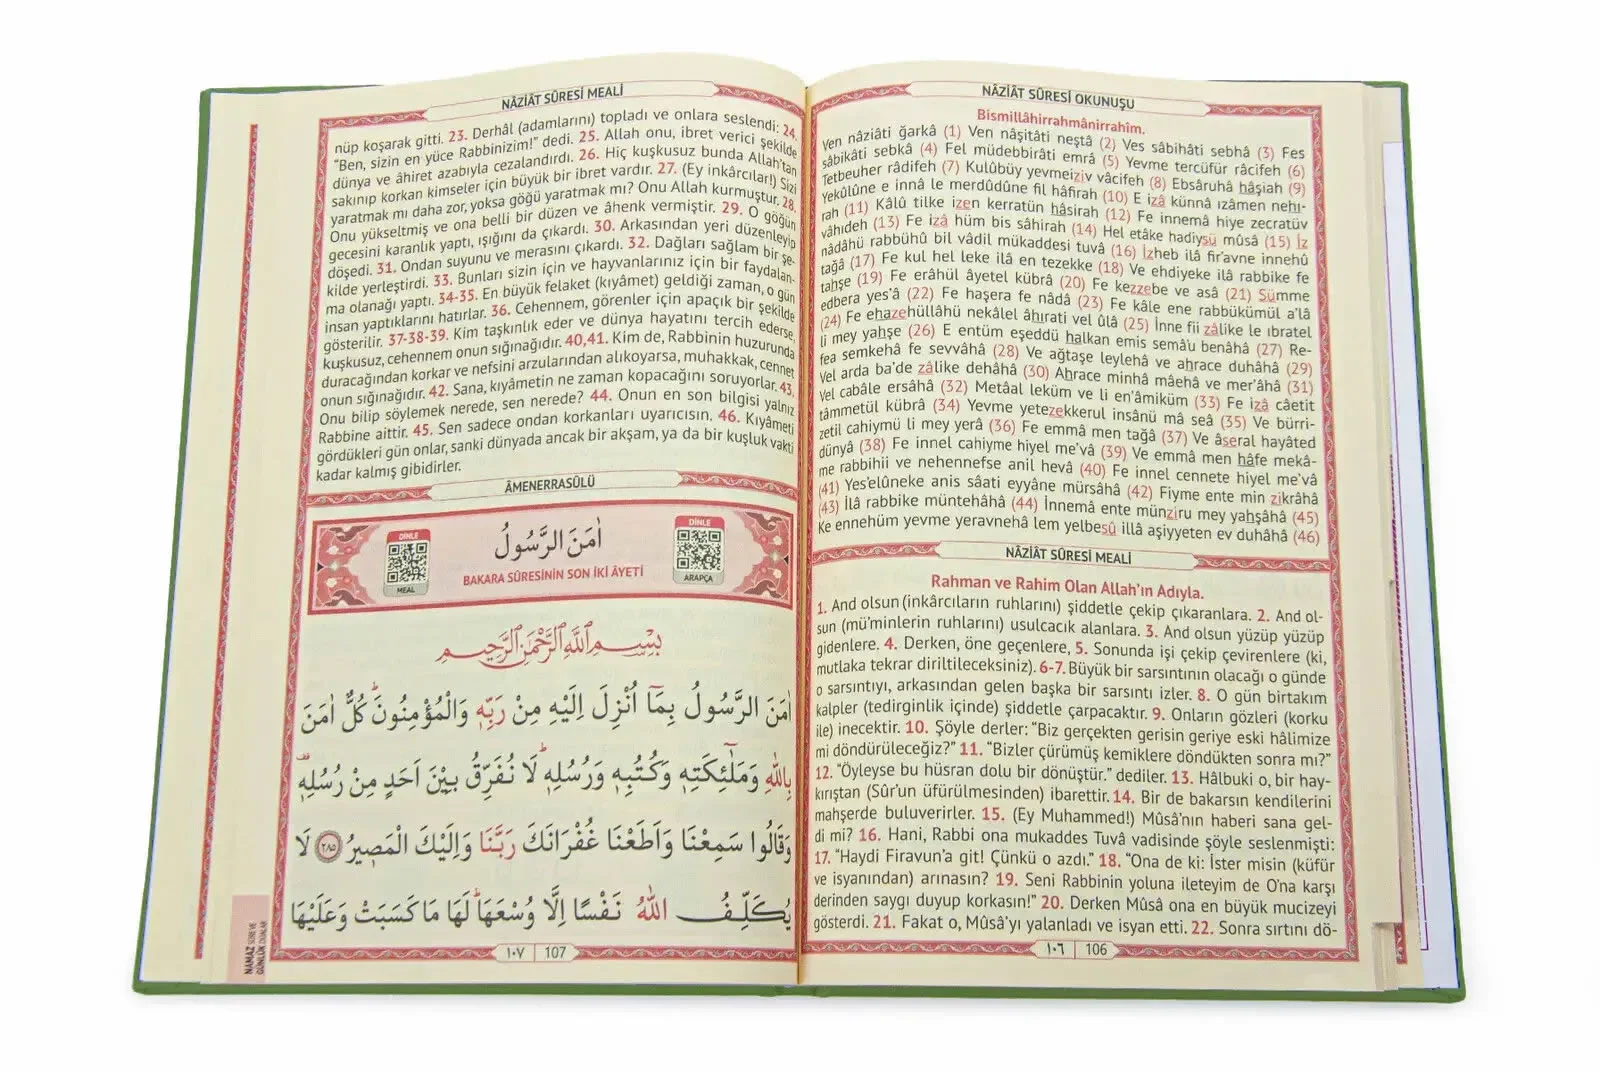 NÂZİÂT SÛRESİ OKUNUŞU
Bismillâhirrahmânirrahîm.
Ven nâziâti ğarkâ (1) Ven nâşitâti neştâ (2) Ves sâbihâti sebhâ (3) Fes
sâbikâti sebkâ (4) Fel müdebbirâti emrâ (5) Yevme tercüfür râcifeh (6)
Tetbeuher râdifeh (7) Kulûbüy yevmeiziv vâcifeh (8) Ebsâruhâ hâşiah (9)
Yekûlûne e innâ le merdûdûne fil hâfirah (10) E izâ künnâ ızâmen nehı-
rah (11) Kâlû tilke izen kerratün hâsirah (12) Fe innemâ hiye zecratüv
vâhıdeh (13) Fe izâ hüm bis sâhirah (14) Hel etâke hadiysü mûsâ (15) İz
nâdâhü rabbühû bil vâdil mükaddesi tuvâ (16) İzheb ilâ fir'avne innehû
tağâ (17) Fe kul hel leke ilâ en tezekke (18) Ve ehdiyeke ilâ rabbike fe
tahşe (19) Fe erâhül âyetel kübrâ (20) Fe kezzebe ve asâ (21) Sümme
edbera yes'â (22) Fe haşera fe nâdâ (23) Fe kâle ene rabbükümül a'lâ
(24) Fe ehazehüllâhü nekâlel âhırati vel ûlâ (25) İnne fii zâlike le ıbratel
li mey yahşe (26) E entüm eşeddü halkan emis semâ'u benâhâ (27) Re-
fea semkehâ fe sevvâhâ (28) Ve ağtaşe leylehâ ve ahrace duhâhâ (29)
Vel arda ba'de zâlike dehâhâ (30) Ahrace minhâ mâehâ ve mer'âhâ (31)
Vel cabâle ersâhâ (32) Metâal leküm ve li en'âmiküm (33) Fe izâ câetit
tâmmetül kübrâ (34) Yevme yetezekkerul insânü mâ seâ (35) Ve bürri-
zetil cahiymü li mey yerâ (36) Fe emmâ men tağâ (37) Ve âseral hayâted
dünyâ (38) Fe innel cahiyme hiyel me'vâ (39) Ve emmâ men hâfe mekâ-
me rabbihii ve nehennefse anil hevâ (40) Fe innel cennete hiyel me'vâ
(41) Yes'elûneke anis sâati eyyâne mürsâhâ (42) Fiyme ente min zikrâhâ
(43) İlâ rabbike müntehâhâ (44) İnnemâ ente münziru mey yahşâhâ (45)
Ke ennehüm yevme yeravnehâ lem yelbesû illâ aşiyyeten ev duhâhâ (46)
NÂZİÂT SÛRESİ MEALİ
Rahman ve Rahim Olan Allah'ın Adıyla.
1. And olsun (inkârcıların ruhlarını) şiddetle çekip çıkaranlara. 2. And ol-
sun (mü'minlerin ruhlarını) usulcacık alanlara. 3. And olsun yüzüp yüzüp
gidenlere. 4. Derken, öne geçenlere, 5. Sonunda işi çekip çevirenlere (ki,
mutlaka tekrar diriltileceksiniz). 6-7. Büyük bir sarsıntının olacağı o günde
o sarsıntıyı, arkasından gelen başka bir sarsıntı izler. 8. O gün birtakım
kalpler (tedirginlik içinde) şiddetle çarpacaktır. 9. Onların gözleri (korku
ile) inecektir. 10. Şöyle derler: "Biz gerçekten gerisin geriye eski hâlimize
mi döndürüleceğiz?" 11. "Bizler çürümüş kemiklere döndükten sonra mı?"
12. "Öyleyse bu hüsran dolu bir dönüştür." dediler. 13. Hâlbuki o, bir hay-
kırıştan (Sûr'un üfürülmesinden) ibarettir. 14. Bir de bakarsın kendilerini
mahşerde buluverirler. 15. (Ey Muhammed!) Mûsâ'nın haberi sana gel-
di mi? 16. Hani, Rabbi ona mukaddes Tuvâ vadisinde şöyle seslenmişti:
17. "Haydi Firavun'a git! Çünkü o azdı." 18. "Ona de ki: İster misin (küfür
ve isyanından) arınasın? 19. Seni Rabbinin yoluna ileteyim de O'na karşı
derinden saygı duyup korkasın!" 20. Derken Mûsâ ona en büyük mucizeyi
gösterdi. 21. Fakat o, Mûsâ'yı yalanladı ve isyan etti. 22. Sonra sırtını dö-
١٠٦ 106
NÂZİÂT SÛRESİ MEALİ
nüp koşarak gitti. 23. Derhâl (adamlarını) topladı ve onlara seslendi: 24.
"Ben, sizin en yüce Rabbinizim!" dedi. 25. Allah onu, ibret verici şekilde
dünya ve âhiret azabıyla cezalandırdı. 26. Hiç kuşkusuz bunda Allah'tan
sakınıp korkan kimseler için büyük bir ibret vardır. 27. (Ey inkârcılar!) Sizi
yaratmak mı daha zor, yoksa göğü yaratmak mı? Onu Allah kurmuştur. 28.
Onu yükseltmiş ve ona belli bir düzen ve âhenk vermiştir. 29. O göğün
gecesini karanlık yaptı, ışığını da çıkardı. 30. Arkasından yeri düzenleyip
döşedi. 31. Ondan suyunu ve merasını çıkardı. 32. Dağları sağlam bir şe-
kilde yerleştirdi. 33. Bunları sizin için ve hayvanlarınız için bir faydalan-
ma olanağı yaptı. 34-35. En büyük felaket (kıyâmet) geldiği zaman, o gün
insan yaptıklarını hatırlar. 36. Cehennem, görenler için apaçık bir şekilde
gösterilir. 37-38-39. Kim taşkınlık eder ve dünya hayatını tercih ederse,
kuşkusuz, cehennem onun sığınağıdır. 40,41. Kim de, Rabbinin huzurunda
duracağından korkar ve nefsini arzularından alıkoyarsa, muhakkak, cennet
onun sığınağıdır. 42. Sana, kıyâmetin ne zaman kopacağını soruyorlar. 43.
Onu bilip söylemek nerede, sen nerede? 44. Onun en son bilgisi yalnız
Rabbine aittir. 45. Sen sadece ondan korkanları uyarıcısın. 46. Kıyâmeti
gördükleri gün onlar, sanki dünyada ancak bir akşam, ya da bir kuşluk vakti
kadar kalmış gibidirler.
ÂMENERRASÛLÜ
DİNLE
MEAL
اٰمَنَ الرَّسُولُ
BAKARA SÛRESİNİN SON İKİ ÂYETİ
DİNLE
ARAPÇA
بِسْمِ اللّٰهِ الرَّحْمٰنِ الرَّحِيمِ
اٰمَنَ الرَّسُولُ بِمَٓا اُنْزِلَ اِلَيْهِ مِنْ رَبِّهٖ وَالْمُؤْمِنُونَۜ كُلٌّ اٰمَنَ
بِاللّٰهِ وَمَلٰٓئِكَتِهٖ وَكُتُبِهٖ وَرُسُلِهٖۜ لَا نُفَرِّقُ بَيْنَ اَحَدٍ مِنْ رُسُلِهٖ۠
وَقَالُوا سَمِعْنَا وَاَطَعْنَا غُفْرَانَكَ رَبَّنَا وَاِلَيْكَ الْمَصٖيرُ ٢٨٥ لَا
يُكَلِّفُ اللّٰهُ نَفْسًا اِلَّا وُسْعَهَاۜ لَهَا مَا كَسَبَتْ وَعَلَيْهَا
١٠٧ 107
NAMAZ SÛRE VE
GÜNLÜK DUALAR